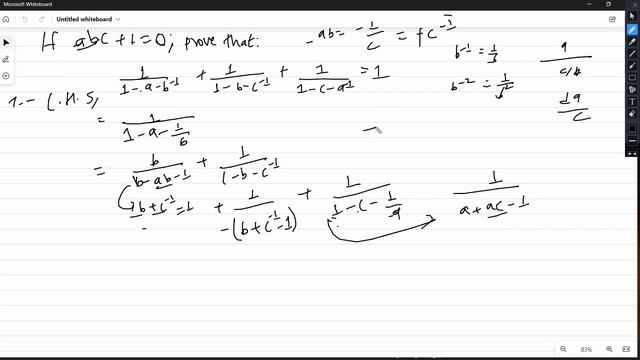 Microsoft Whiteboard
Untitled whiteboard
If abc + 1 = 0; prove that: -ab = -1/c = +c^-1
b^-1 = 1/b
b^-2 = 1/b^2
1/(1-a-b^-1) + 1/(1-b-c^-1) + 1/(1-c-a^-1) = 1
L.H.S,
= 1/(1-a-1/b)
= b/(b-ab-1) + 1/(1-b-c^-1)
b+c^-1-1 + 1/-(b+c^-1-1) + 1/(1-c-1/a) 1/(a+ac-1)
83%